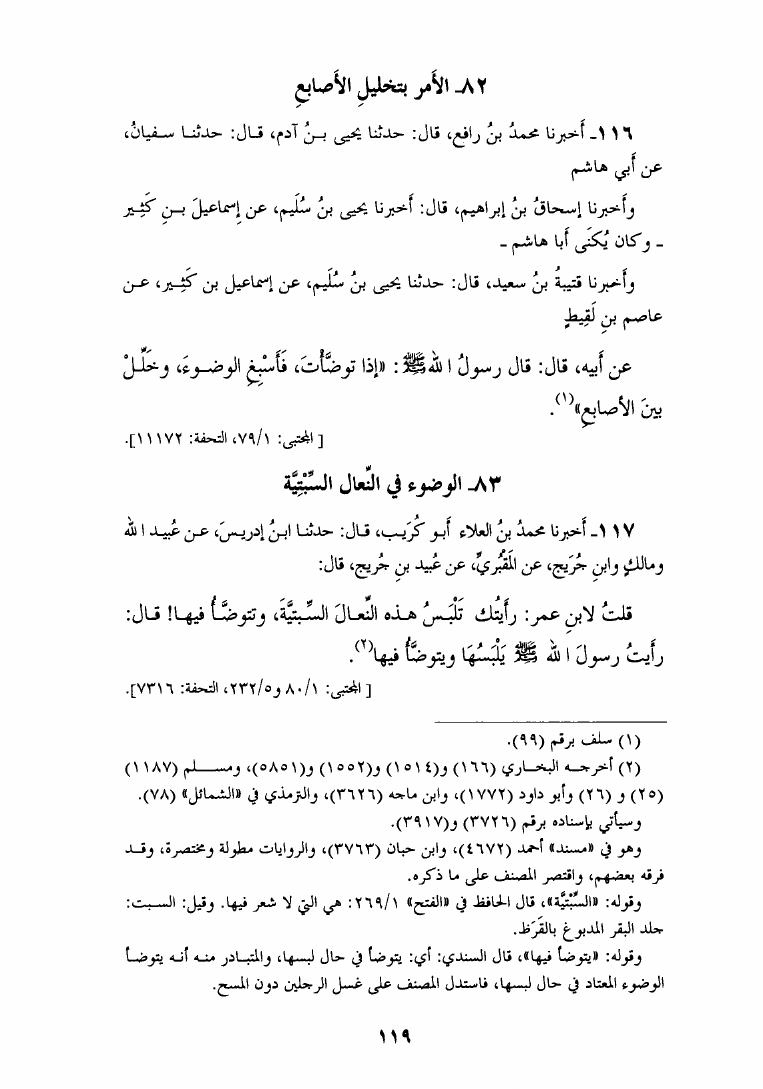 ٨٢ـ الأَمر بتخليلِ الأَصابعِ
١١٦ـ أَخبرنا محمدُ بنُ رافع، قال: حدثنا يحيى بـنُ آدم، قـال: حدثنـا سـفيانُ،
عن أَبي هاشم
وأَخبرنا إسحاقُ بنُ إبراهيم، قال: أَخبرنا يحيى بنُ سُلَيم، عن إسماعيلَ بـنِ كَثِـير
ـ وكان يُكنَى أبا هاشم ـ
وأَخبرنا قتيبةُ بنُ سعيد، قال: حدثنا يحيى بنُ سُلَيم، عن إسماعيل بن كَثِـير، عـن
عاصم بنِ لَقِيطٍ
عن أَبيه، قال: قال رسولُ الله ﷺ: «إذا توضَّأْتَ، فَأَسْبِغِ الوضـوءَ، وخَلِّـلْ
بينَ الأصابعِ»(١).
[المجتبى: ٧٩/١، التحفة: ١١١٧٢].
٨٣ـ الوضوء في النِّعال السِّبْتِيَّة
١١٧ـ أَخبرنا محمدُ بنُ العلاء أَبـو كُرَيـب، قـال: حدثنـا ابـنُ إدريـسَ، عـن عُبيـد الله
ومالكٍ وابنِ جُرَيج، عن المَقْبُريِّ، عن عُبيد بنِ جُريج، قال:
قلتُ لابنِ عمر: رأَيتُك تَلْبَـسُ هـذه النِّعـالَ السِّـبتيَّةَ، وتتوضَّـأُ فيهـا! قـال:
رأَيتُ رسولَ الله ﷺ يَلْبَسُهَا ويتوضَّأُ فيها(٢).
[المجتبى: ٨٠/١ و٢٣٢/٥، التحفة: ٧٣١٦].
(١) سلف برقم (٩٩).
(٢) أخرجـه البخـاري (١٦٦) و(١٥١٤) و(١٥٥٢) و(٥٨٥١)، ومسـلم (١١٨٧)
(٢٥) و (٢٦) وأبو داود (١٧٧٢)، وابن ماجه (٣٦٢٦)، والترمذي في «الشمائل» (٧٨).
وسيأتي بإسناده برقم (٣٧٢٦) و(٣٩١٧).
وهو في «مسند» أحمد (٤٦٧٢)، وابن حبان (٣٧٦٣)، والروايات مطولة ومختصرة، وقـد
فرقه بعضهم، واقتصر المصنف على ما ذكره.
وقوله: «السِّبْتِيَّة»، قال الحافظ في «الفتح» ٢٦٩/١: هي التي لا شعر فيها. وقيل: السـبت:
جلد البقر المدبوغ بالقَرَظ.
وقوله: «يتوضأ فيها»، قال السندي: أي: يتوضأ في حال لبسها، والمتبـادر منـه أنـه يتوضـأ
الوضوء المعتاد في حال لبسها، فاستدل المصنف على غسل الرجلين دون المسح.
١١٩